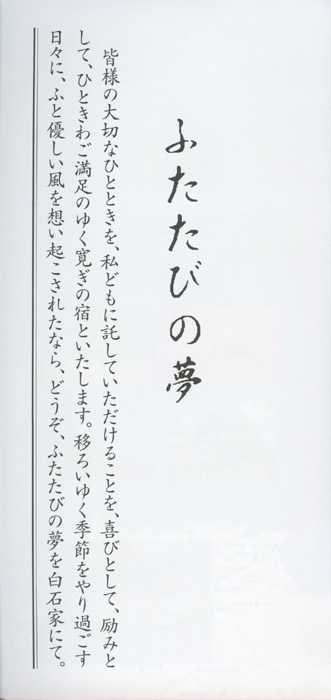 ふたたびの夢
皆様の大切なひとときを、私どもに託していただけることを、喜びとして、励みと
して、ひときわご満足のゆく寛ぎの宿といたします。移ろいゆく季節をやり過ごす
日々に、ふと優しい風を想い起こされたなら、どうぞ、ふたたびの夢を白石家にて。